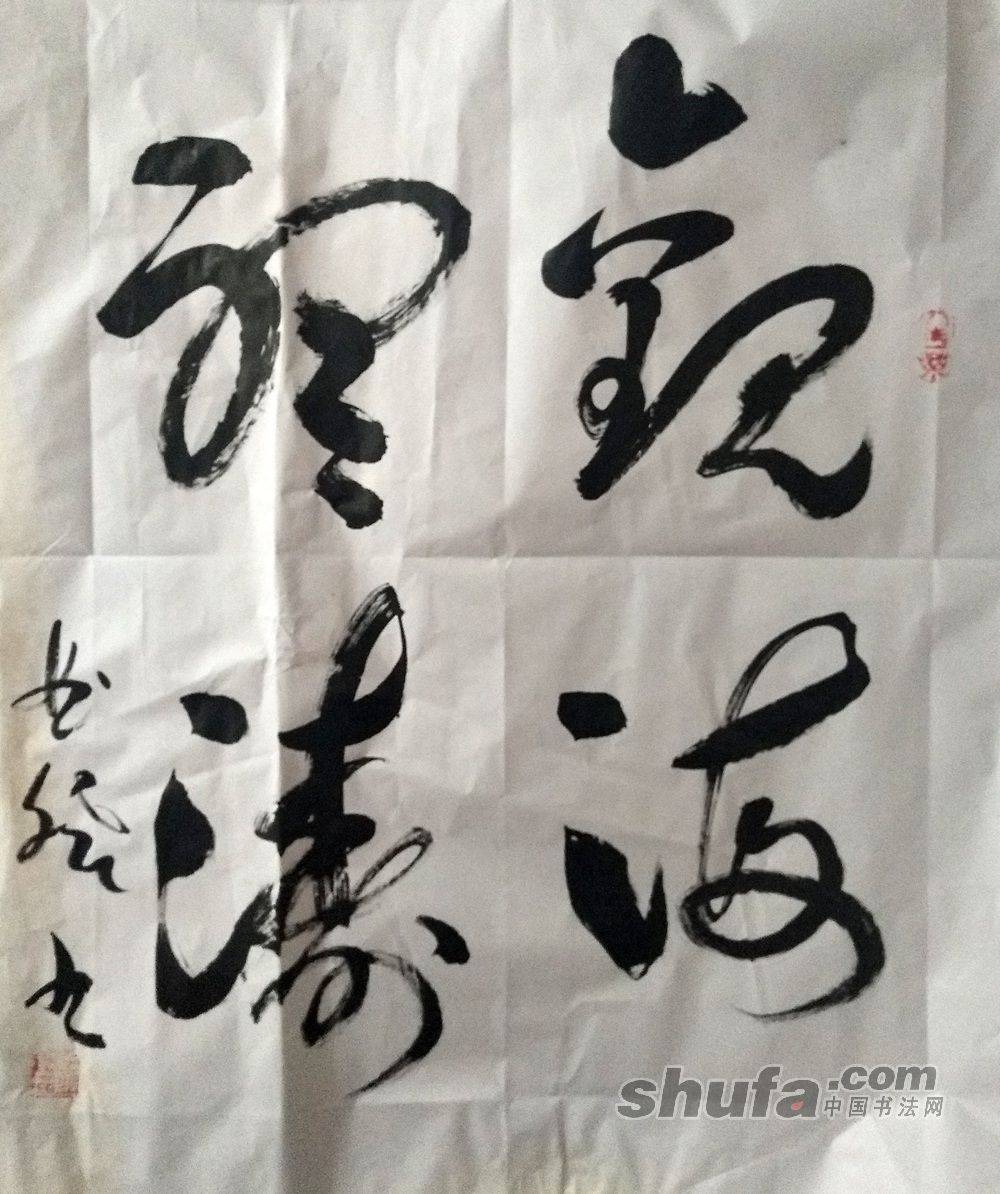 觀海
聽濤
shufa.com
中国书法网